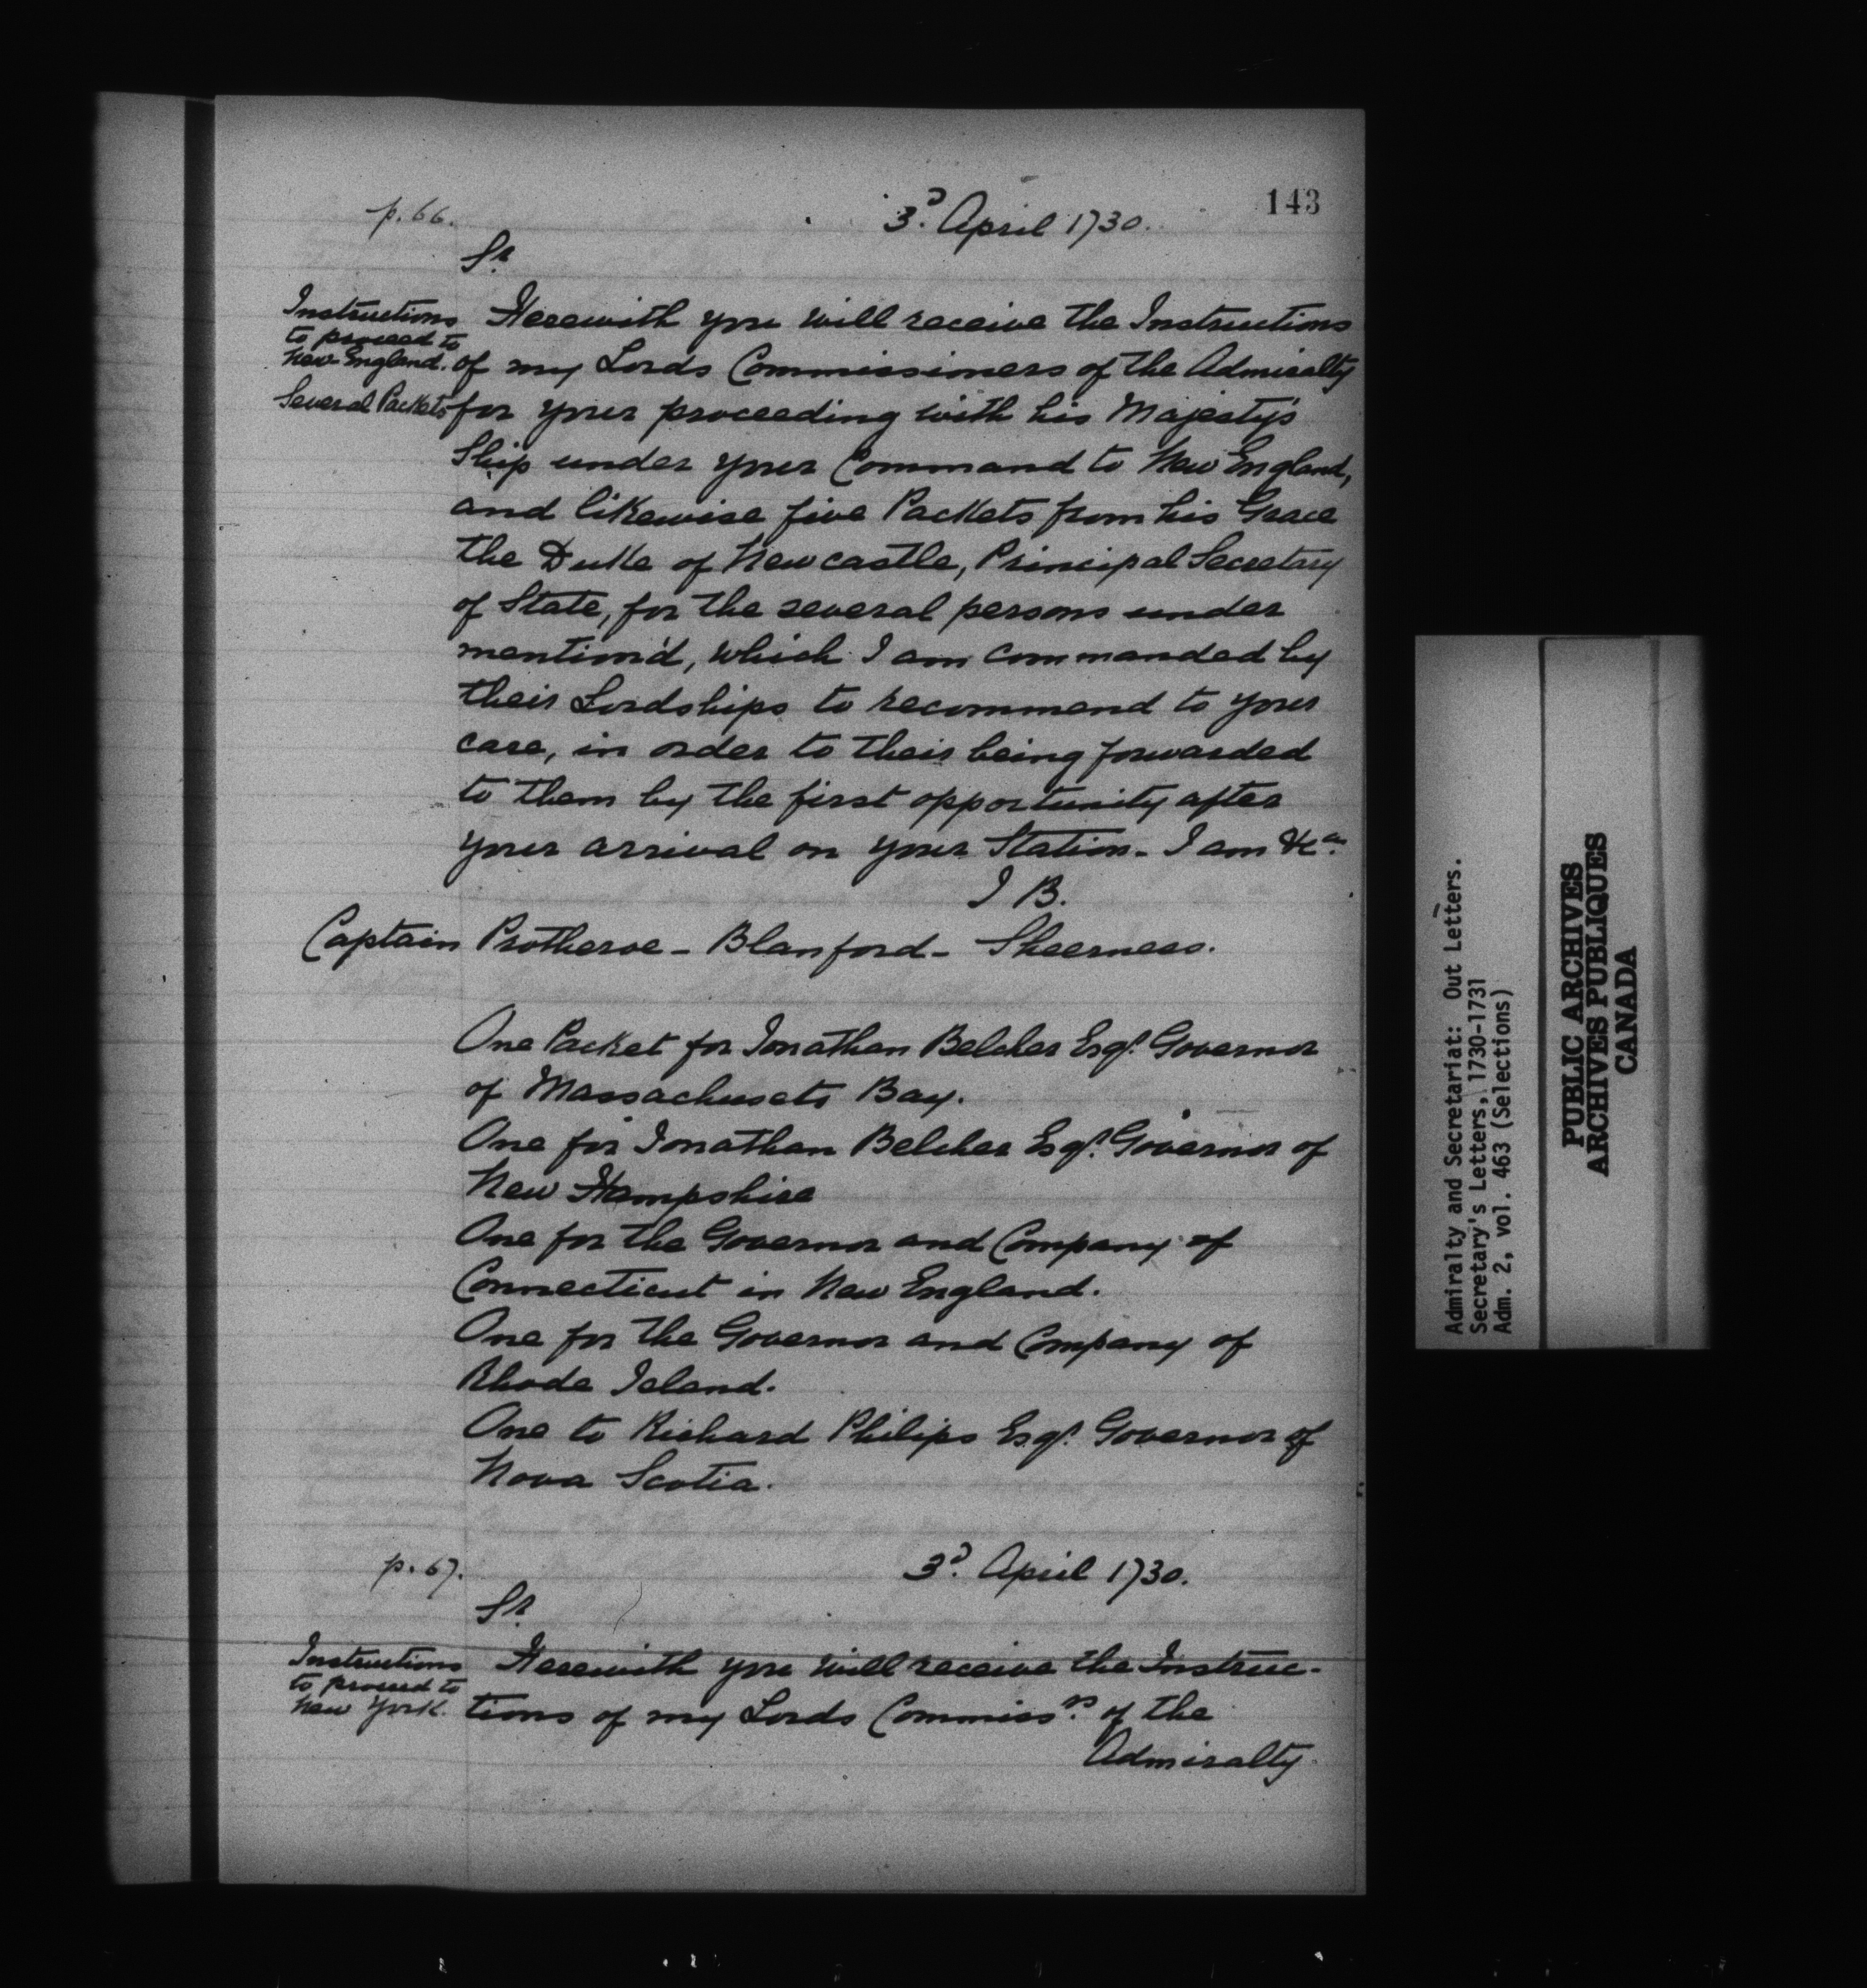 143
p. 66.
3.d April 1730.
Sr.
Instructions
to proceed to
New England.
Several Packets
Herewith you will receive the Instructions
of my Lords Commissioners of the Admiralty
for your proceeding with his Majesty's
Ship under your Command to New England,
and likewise five Packets from his Grace
the Duke of Newcastle, Principal Secretary
of State, for the several persons under
mention'd, which I am commanded by
their Lordships to recommend to your
care, in order to their being forwarded
to them by the first opportunity after
your arrival on your Station - I am &ca.
J B.
Captain Protheroe - Blanford - Sheerness.
One Packet for Jonathan Belcher Esqr. Governor
of Massachusets Bay.
One for Jonathan Belcher Esqr. Governor of
New Hampshire
One for the Governor and Company of
Connecticut in New England.
One for the Governor and Company of
Rhode Island.
One to Richard Philips Esqr. Governor of
Nova Scotia.
p. 67.
3d. April 1730.
Sr.
Instructions
to proceed to
New York.
Herewith you will receive the Instruc-
tions of my Lords Commissrs. of the
Admiralty
Admiralty and Secretariat: Out Letters.
Secretary's Letters, 1730-1731
Adm. 2, vol. 463 (Selections)
PUBLIC ARCHIVES
ARCHIVES PUBLIQUES
CANADA